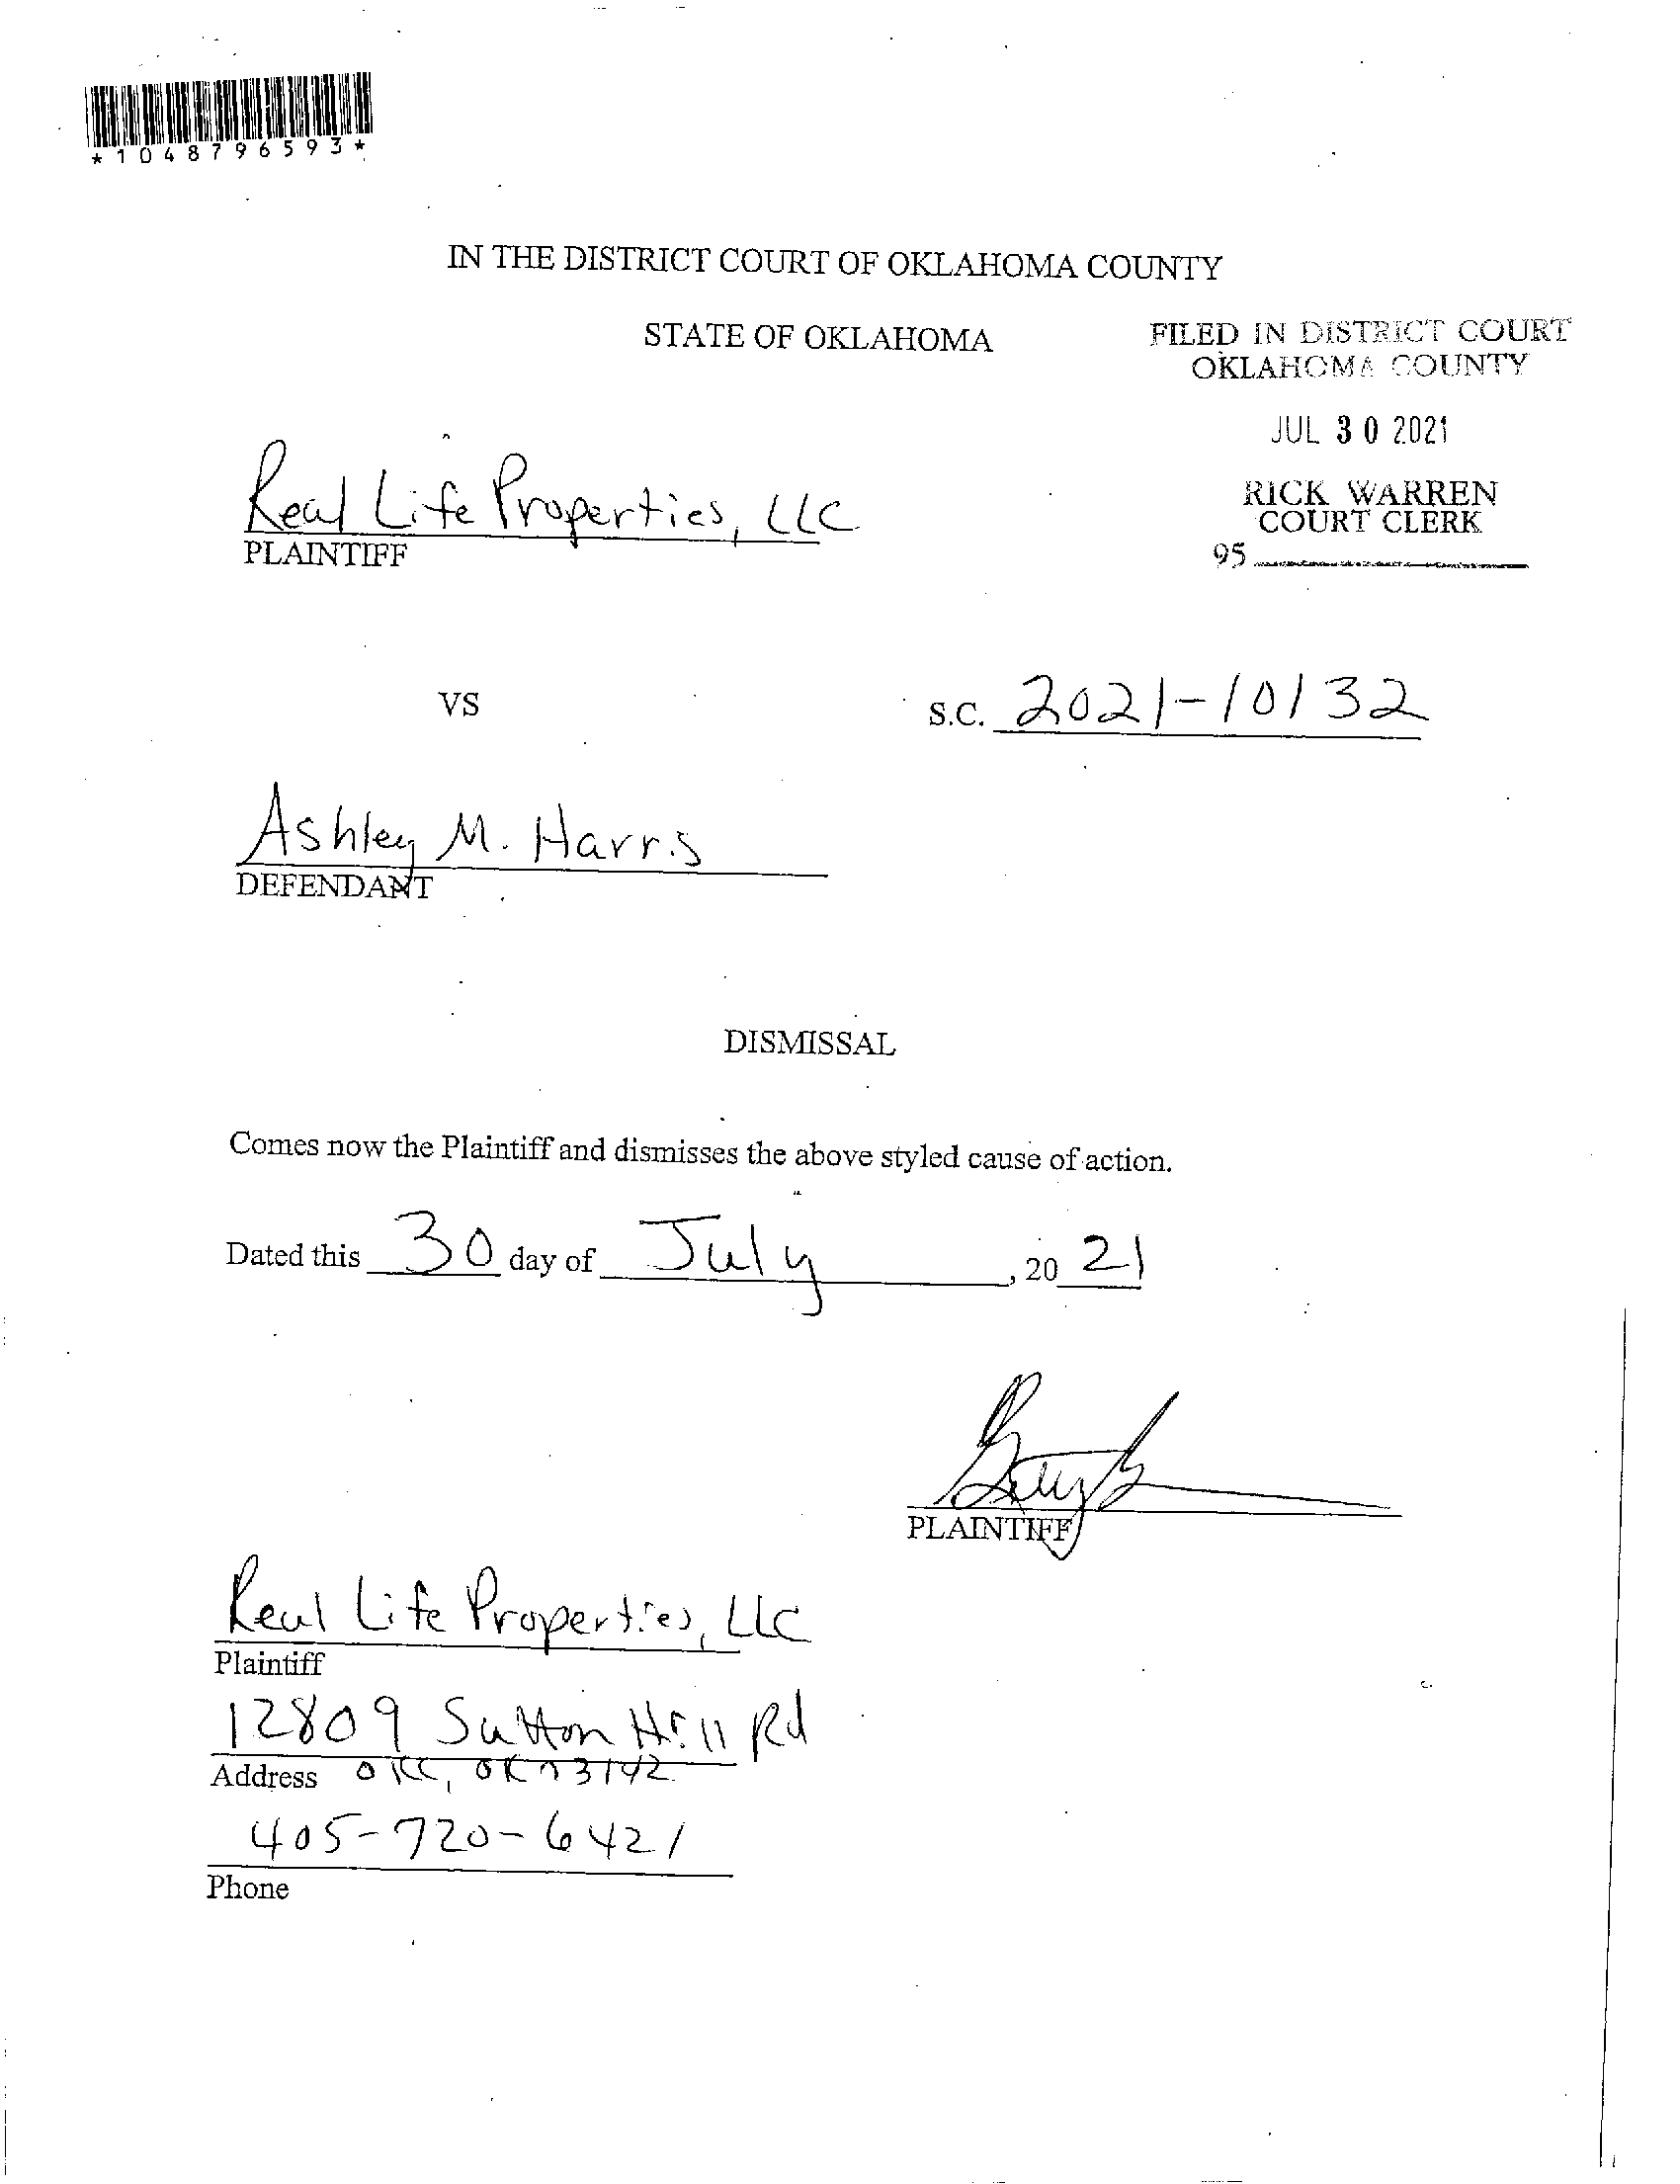 *1048796593*
IN THE DISTRICT COURT OF OKLAHOMA COUNTY
STATE OF OKLAHOMA
FILED IN DISTRICT COURT
OKLAHOMA COUNTY
JUL 30 2021
RICK WARREN
COURT CLERK
95
Real Life Properties, LLC
PLAINTIFF
VS
S.C. 2021-10132
Ashley M. Harris
DEFENDANT
DISMISSAL
Comes now the Plaintiff and dismisses the above styled cause of action.
Dated this 30 day of July, 20 21
PLAINTIFF
Real Life Properties, LLC
Plaintiff
12809 Sutton Hill Rd
Address OKC, OK 73142
405-720-6421
Phone